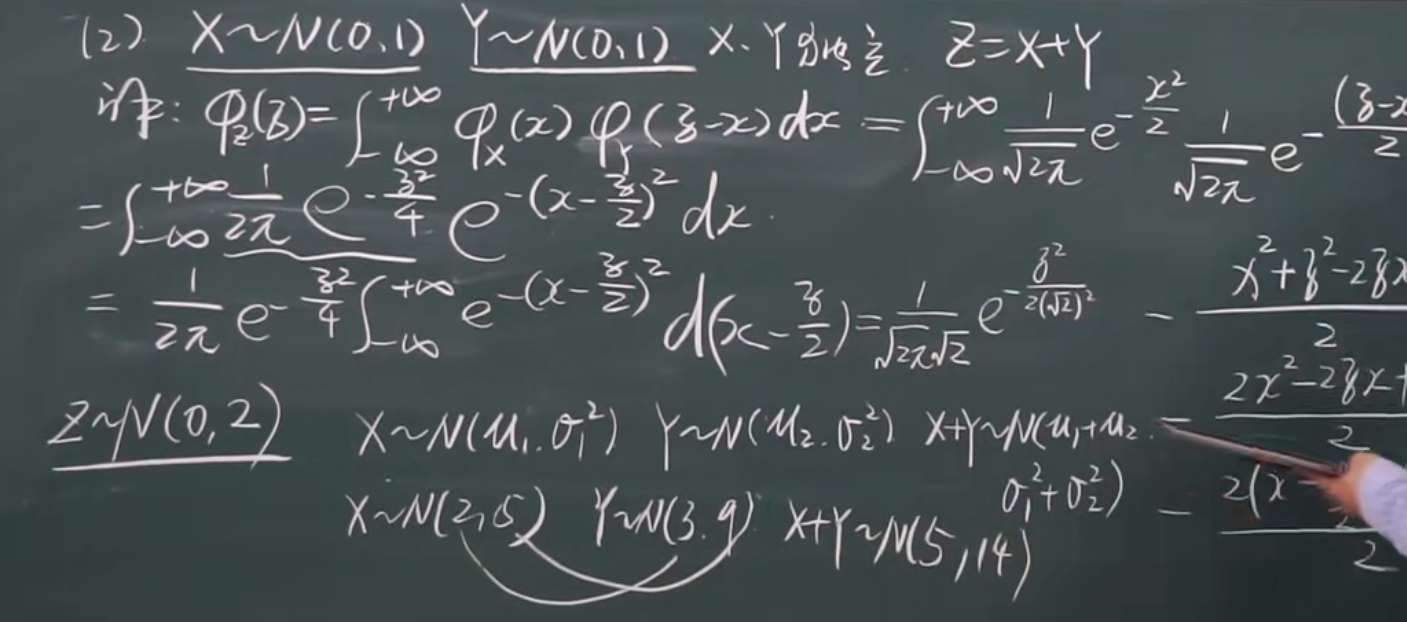 (2) X~N(0,1) Y~N(0,1) X、Y独立. Z=X+Y
证: φ_Z(z)=∫_{-∞}^{+∞} φ_X(x) φ_Y(z-x)dx = ∫_{-∞}^{+∞} 1/√(2π) e^{-x²/2} 1/√(2π) e^{-(z-x)/2}
=∫_{-∞}^{+∞} 1/(2π) e^{-z²/4} e^{-(x-z/2)²} dx.
= 1/(2π) e^{-z²/4} ∫_{-∞}^{+∞} e^{-(x-z/2)²} d(x-z/2) = 1/(√(2π)√2) e^{-z²/(2(√2)²)}
Z~N(0,2) X~N(μ₁,σ₁²) Y~N(μ₂,σ₂²) X+Y~N(μ₁+μ₂,
σ₁²+σ₂²)
X~N(2,5) Y~N(3,9) X+Y~N(5,14)
- (x²+z²-2zx)/2
- (2x²-2zx+)/2
- 2(x-/2